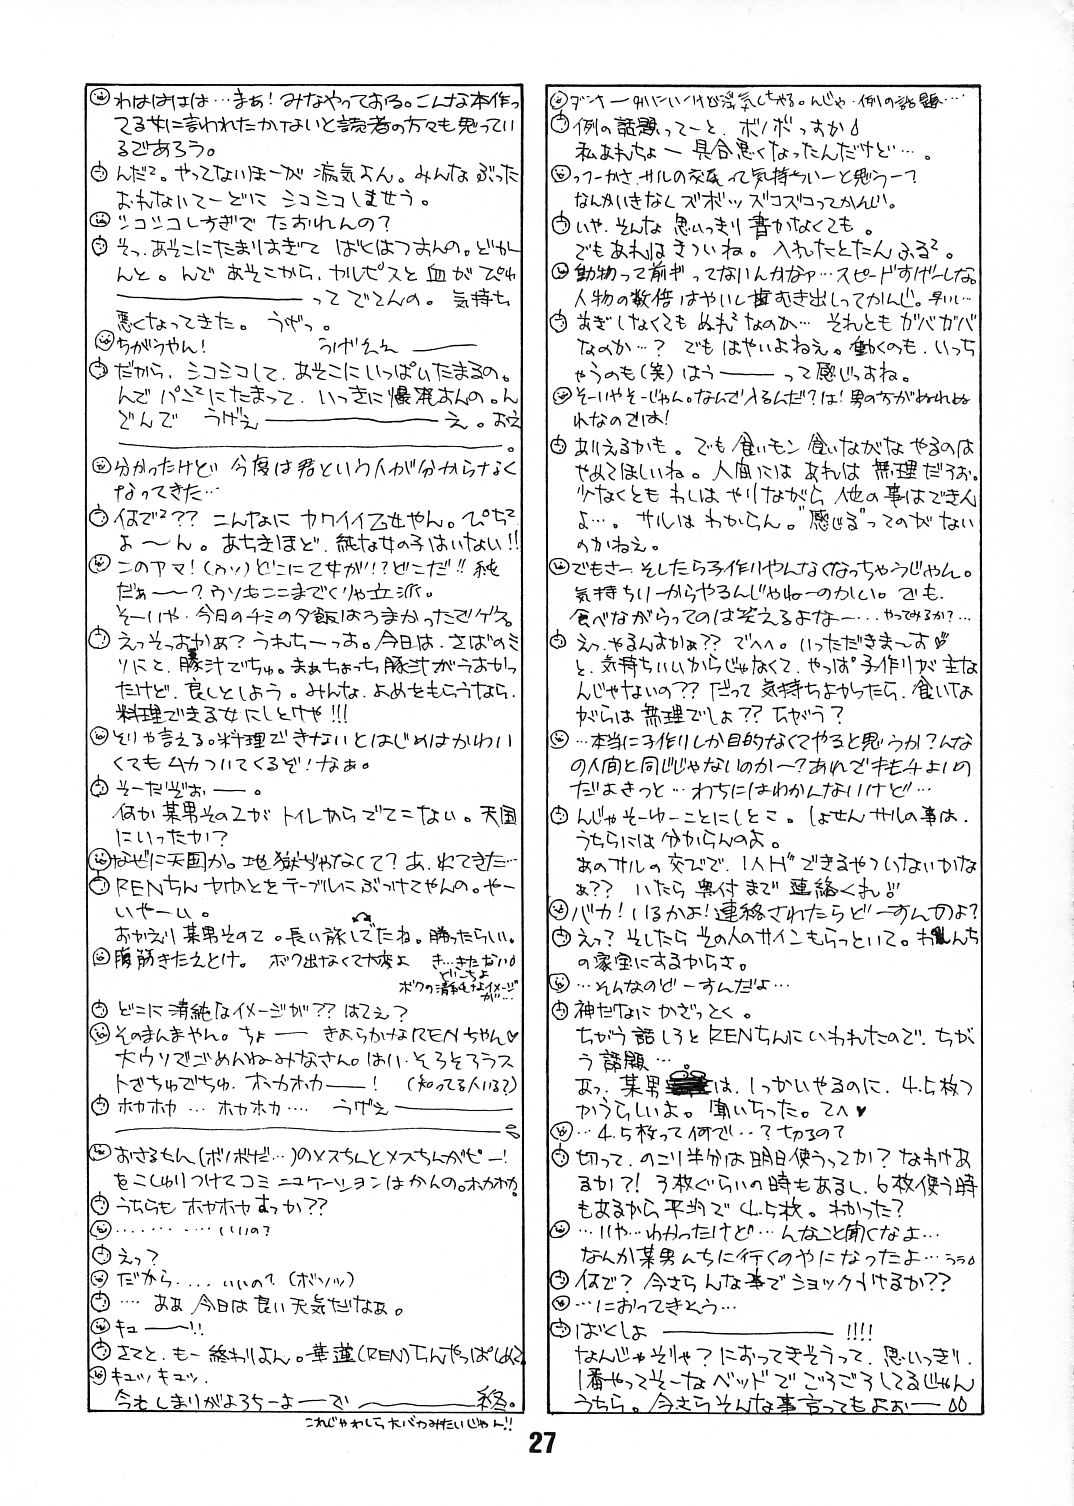 わははは…まぁ!みなやっておる。こんな本作っ
てる女に言われたかないと読者の方々も思ってい
るであろう。
んだ²。やってないほーが病気よん。みんなぶった
おれないてーどにシコシコしませう。
シコシコしすぎでたおれんの?
そっ、あそこにたまりすぎてばくはつすんの。どか
んと。んであそこから、カルピスと血がぴゅ
――――ってでてんの。気持ち
悪くなってきた。うげっ。
ちがうやん! うげええ――
だから、シコシコして、あそこにいっぱいたまるの。
んでパン²にたまって、いっきに爆発すんの。ん
どんで うげえ――――え。おえ
――――――――。
分かったけど今度は君という人が分からなく
なってきた…
何で²?? こんなにカワイイ乙女やん。ぴち²
よ〜ん。あちきほど、純な女の子はいない!!
このアマ!(ウソ)どこに乙女が!?どこだ!!純
だぁ〜?ウソもここまでくりゃ立派。
そーいや、今日のチミの夕飯はうまかったでゲス。
えっそぉかぁ?うれちーっす。今日は、さばのミ
ソにと、豚汁でちゅ。まぁちょっち豚汁がうすかっ
たけど、良しとしよう。みんな、よめをもらうなら、
料理できる女にしとけや!!!
そりゃ言える。料理できないとはじめはかわい
くてもムカついてくるぞ!なぁ。
そーだぞぉ――。
何か某男その2がトイレからでてこない。天国
にいったか?
なぜに天国か。地獄ぢゃなくて?あ、れてきた…
RENちん、ヤカンをテーブルにぶつけてやんの。やー
いやーい。
おかえり某男その2。長い旅してたね。勝ったらしい。
腹筋きたえとけ。 ボク出なくて大変よ き…きたない
どこちよ
ボクの清純なイメージ
が…
どこに清純なイメージが?? はてぇ?
そのまんまやん。ちょ―― きよらかなRENちゃん♥
大ウソでごめんねみなさん。はい、そろそろラス
トでちゅでちゅ、ホカホカ――! (知ってる人いる?)
ホカホカ … ホカホカ… うげえ――――
――――――――
おさるちん(ボノボだ…)のメスちんとメスちんがピー!
をこしゅりつけてコミュニケーションはかんの。ホカホカ。
うちらもホヤホヤすっか??
………… いいの?
えっ?
だから、… いいの?(ボソッ)
… あぁ 今日は良い天気だなぁ。
キュ――!!
さてと、もー終わりよん。華蓮(REN)ちんやっぱしめて
キュッキュッ、
今もしまりがよろちーよ――で ――――終。
これじゃわしら大バカみたいじゃん!!
例の話題ってーと、ボノボっすか
私おれちょー具合悪くなったんだけど…。
っつーかさ、サルの交尾って気持ちいーと思うー?
なんかいきなしズボッズコズコってかんじ。
いや、そんな思いっきり書かなくても。
でもあれはきついね。入れたとたんふる²。
動物って前ギってないんかなァ…スピードすげーしな。
人物の数倍はやいし歯むき出しってかんじ。早いし…
前ぎしなくてもぬれ²なのか… それともガバガバ
なのか…? でもはやいよねえ。働くのも、いっち
ゃうのも(笑)はう――って感じっすね。
そーいやそーじゃん。なんで入るんだ?は!男の方がぬれぬ
れなのでは!
ありえるかも。でも食いモン食いながらやるのは
やめてほしいね。人間にはあれは無理だろぉ。
少なくともわしはやりながら他の事はできん
よ…。サルはわからん。"感じる"ってのがない
のかねぇ。
でもさー、そしたら子作りやんなくなっちゃうじゃん。
気持ちいーからやるんじゃねーのかい。でも、
食べながらってのは笑えるよな〜…、やってみるか?…
えっ、やるんすかぁ?? でへへ。いっただきま〜す
と、気持ちいいからじゃなくて、やっぱ子作りが主な
んじゃないの?? だって気持ちよかったら、食いな
がらは無理でしょ?? ちがう?
…本当に子作りしか目的なくてやると思うか?んな
の人間と同じじゃないのか〜?あれでキモチよいの
だよきっと…わちにはわかんないけど…
んじゃそーゆーことにしとこ。しょせんサルの事は、
うちらには分からんのよ。
あのサルの交びで、1人Hできるやついないかな
ぁ?? いたら奥付まで連絡くれ!!
バカ!いるかよ!連絡されたらどーすんのよ?
えっ?そしたらその人のサインもらっといて。わしんち
の家宝にするからさ。
…そんなのどーすんだよ…
神だなにかざっとく。
ちがう話しろとRENちんにいわれたので、ちが
う話題…
あっ、某男は、1っかいやるのに、4.5枚つ
かうらしいよ。聞いちった。てへ♥
…4.5枚って何で…?切るの?
切って、のこり半分は明日使うってか?なわけあ
るか?!3枚ぐらいの時もあるし、6枚使う時
もあるから平均で4.5枚。わかった?
…いや…わかったけど…んなこと聞くなよ…
なんか某男んちに行くのやになったよ…うう
何で?今さらんな事でショックうけるか??
…におってきそう…
ばくしょ――――!!!!
なんじゃそりゃ?におってきそうって、思いっきり、
1番やってそーなベッドでごろごろしてるじゃん
うちら。今さらそんな事言ってもよぉ――
27